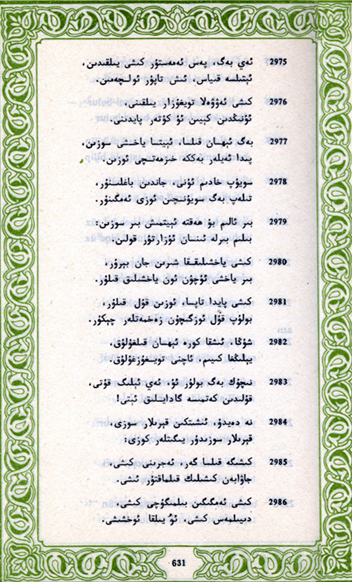 2975 ئەي بەگ، پەس ئەمەستۇر كىشى يىلقىدىن،
ئېتىلسە قىياس، ئىش تاپۇر ئولچەمىن.
2976 كىشى ئەۋۋەلا تويغۇزار يىلقىنى،
ئۇنىڭدىن كېيىن ئۇ كۈتەر پايدىنى.
2977 بەگ ئېھسان قىلسا، ئېيتسا ياخشى سۆزىن،
پىدا ئەيلەر بەككە خىزمەتچى ئۆزىن.
2978 سۆيۈپ خادىم ئۇنى، جاندىن باغلىنۇر،
تىلەپ بەگ سۆيۈنچىن ئۆزى ئەمگىنۇر.
2979 بىر ئالىم بۇ ھەقتە ئېيتمىش بىر سۆزىن:
بىلىم بىرلە ئىنسان ئۇزارتۇر قولىن.
2980 كىشى ياخشىلىققا شىرىن جان بېرۇر،
بىر ياخشى ئۈچۈن ئون ياخشىلىق قىلۇر.
2981 كىشى پايدا تاپسا، ئۆزىن قۇل قىلۇر،
بولۇپ قۇل ئۆزگىچۈن زەخمەتلەر چېكۇر.
2982 شۇڭا، ئىشقا كۆرە ئېھسان قىلغۇلۇق،
يېلىڭغا كىيىم، ئاچنى تويغۇزغۇلۇق.
2983 نىچۈك بەگ بولۇر ئۇ، ئەي ئېلىگ قۇتى،
قۇلىدىن كەتمىسە گادايلىق ئېتى!
2984 نە دەيدۇ، ئىشىتكىن قېرىلار سۆزى،
قېرىلار سۆزىدۇر يىگىتلەر كۆزى:
2985 كىشىگە قىلسا گەر، ئەجرىنى كىشى،
جاۋابەن كىشىلىك قىلماقتۇر ئىشى.
2986 كىشى ئەمگىكىن بىلمىگۈچى كىشى،
دىيىلمەس كىشى، ئۇ يىلقا ئوخشىشى.
631